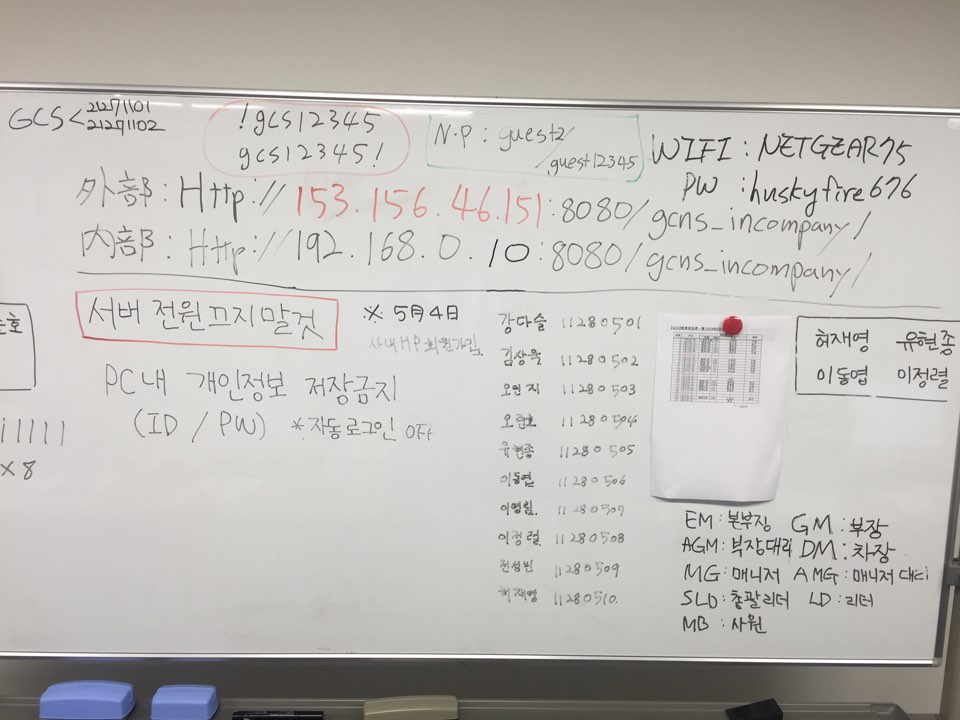 GCS < 21271101
21271102
!gcs12345
gcs12345!
N.P : guest2/
guest12345
WIFI : NETGEAR75
PW : huskyfire676
外部 : Http://153.156.46.151:8080/gcns_incompany/
内部 : Http://192.168.0.10:8080/gcns_incompany/
서버 전원끄지말것
※ 5月4日
PC내 개인정보 저장금지
(ID / PW) ※자동로그인 OFF
호
11111
×8
강다슬 11280501
김상욱 11280502
오민지 11280503
오준호 11280504
유현종 11280505
이동엽 11280506
이영림 11280507
이정렬 11280508
전성빈 11280509
허재영 11280510.
허재영 유현종
이동엽 이정렬
EM : 본부장 GM : 부장
AGM : 부장대리 DM : 차장
MG : 매니저 AMG : 매니저대리
SLD : 총괄리더 LD : 리더
MB : 사원